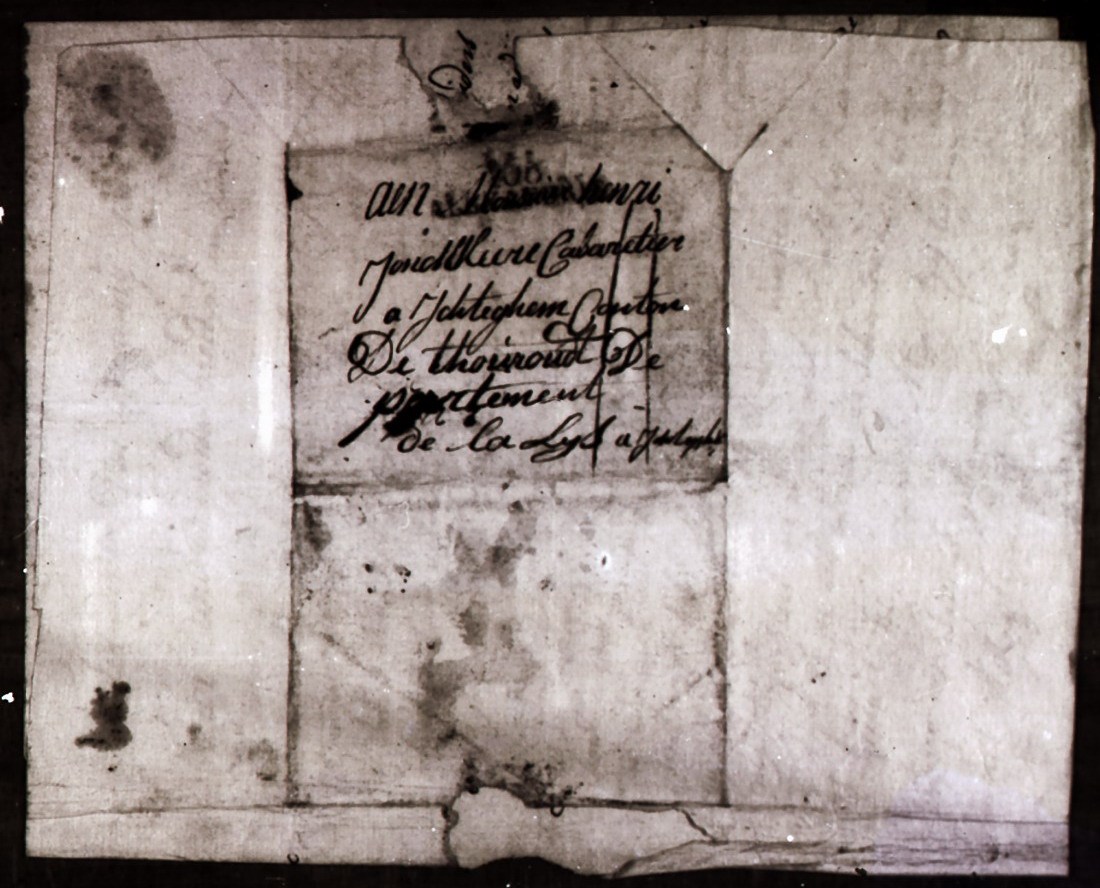 aen henri
Cabaretier
a Ichteghem Canton
De thouroudt De
partement
de la Lys a